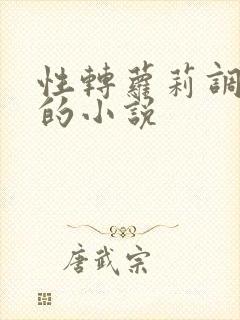 性轉蘿莉調
的小說
唐武宗